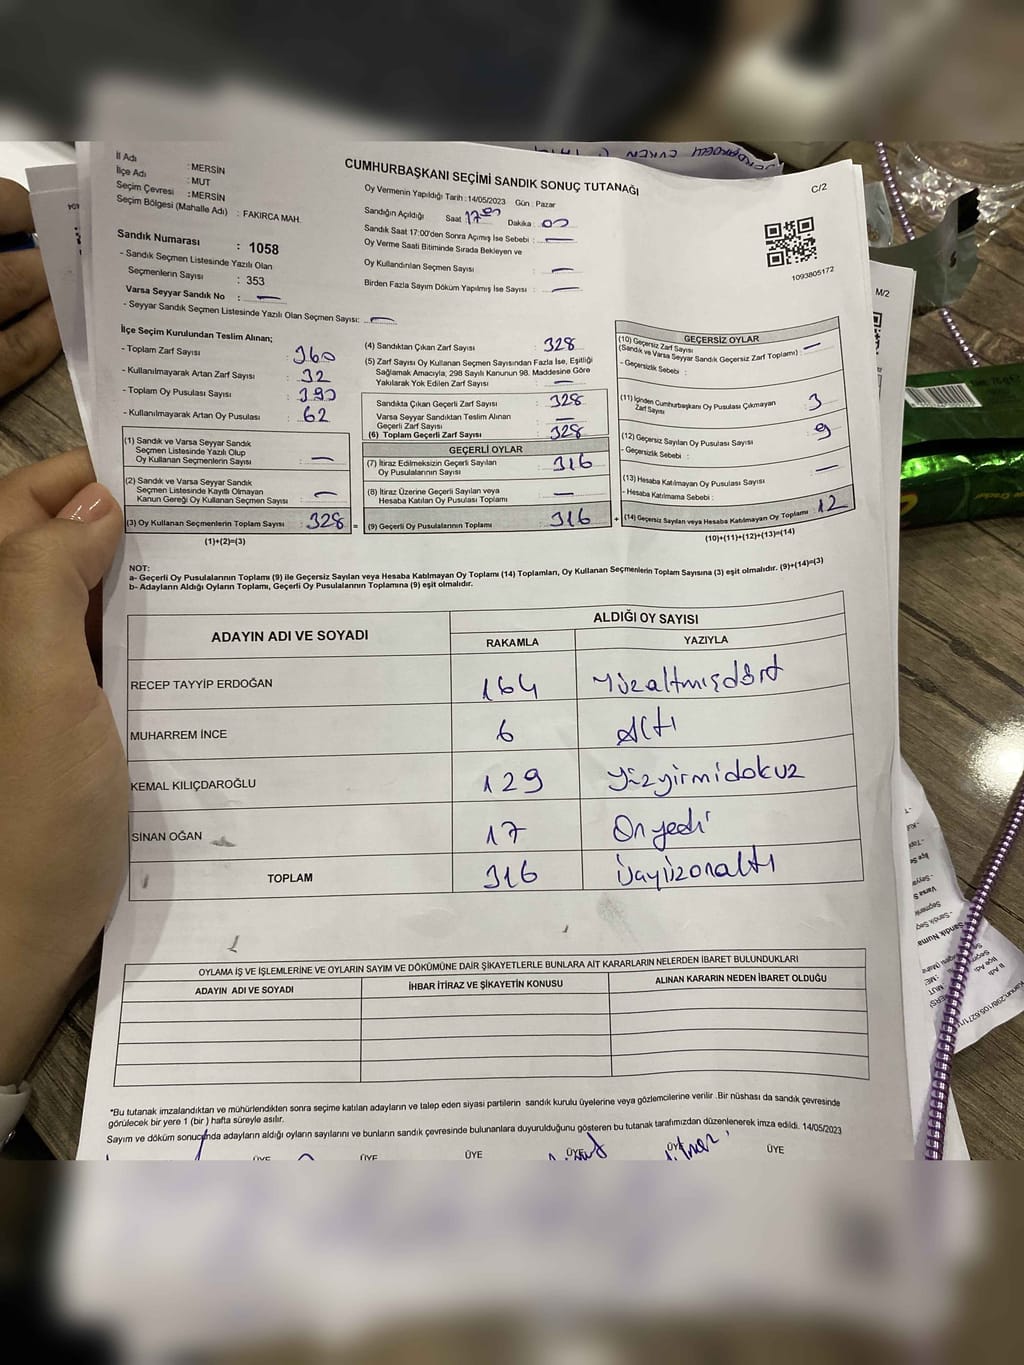 İl Adı : MERSİN
İlçe Adı : MUT
Seçim Çevresi : MERSİN
Seçim Bölgesi (Mahalle Adı) : FAKIRCA MAH.
Sandık Numarası : 1058
- Sandık Seçmen Listesinde Yazılı Olan
Seçmenlerin Sayısı : 353
Varsa Seyyar Sandık No : —
- Seyyar Sandık Seçmen Listesinde Yazılı Olan Seçmen Sayısı: —
CUMHURBAŞKANI SEÇİMİ SANDIK SONUÇ TUTANAĞI
Oy Vermenin Yapıldığı Tarih : 14/05/2023 Gün : Pazar
Sandığın Açıldığı Saat 17:00 Dakika : 00
Sandık Saat 17:00'den Sonra Açımış İse Sebebi : —
Oy Verme Saati Bitiminde Sırada Bekleyen ve
Oy Kullandırılan Seçmen Sayısı : —
Birden Fazla Sayım Döküm Yapılmış İse Sayısı : —
C/2
1093805172
M/2
İlçe Seçim Kurulundan Teslim Alınan;
- Toplam Zarf Sayısı : 360
- Kullanılmayarak Artan Zarf Sayısı : 32
- Toplam Oy Pusulası Sayısı : 390
- Kullanılmayarak Artan Oy Pusulası : 62
(1) Sandık ve Varsa Seyyar Sandık
Seçmen Listesinde Yazılı Olup
Oy Kullanan Seçmenlerin Sayısı : —
(2) Sandık ve Varsa Seyyar Sandık
Seçmen Listesinde Kayıtlı Olmayan
Kanun Gereği Oy Kullanan Seçmen Sayısı : —
(3) Oy Kullanan Seçmenlerin Toplam Sayısı : 328 =
(1)+(2)=(3)
(4) Sandıktan Çıkan Zarf Sayısı : 328
(5) Zarf Sayısı Oy Kullanan Seçmen Sayısından Fazla İse, Eşitliği
Sağlamak Amacıyla; 298 Sayılı Kanunun 98. Maddesine Göre
Yakılarak Yok Edilen Zarf Sayısı : —
Sandıkta Çıkan Geçerli Zarf Sayısı : 328
Varsa Seyyar Sandıktan Teslim Alınan
Geçerli Zarf Sayısı : —
(6) Toplam Geçerli Zarf Sayısı : 328
GEÇERLİ OYLAR
(7) İtiraz Edilmeksizin Geçerli Sayılan
Oy Pusulalarının Sayısı : 316
(8) İtiraz Üzerine Geçerli Sayılan veya
Hesaba Katılan Oy Pusulası Toplamı : —
(9) Geçerli Oy Pusulalarının Toplamı : 316 +
GEÇERSİZ OYLAR
(10) Geçersiz Zarf Sayısı
(Sandık ve Varsa Seyyar Sandık Geçersiz Zarf Toplamı) : —
- Geçersizlik Sebebi :
(11) İçinden Cumhurbaşkanı Oy Pusulası Çıkmayan
Zarf Sayısı : 3
(12) Geçersiz Sayılan Oy Pusulası Sayısı : 9
- Geçersizlik Sebebi :
(13) Hesaba Katılmayan Oy Pusulası Sayısı : —
- Hesaba Katılmama Sebebi :
(14) Geçersiz Sayılan veya Hesaba Katılmayan Oy Toplamı : 12
(10)+(11)+(12)+(13)=(14)
NOT:
a- Geçerli Oy Pusulalarının Toplamı (9) ile Geçersiz Sayılan veya Hesaba Katılmayan Oy Toplamı (14) Toplamları, Oy Kullanan Seçmenlerin Toplam Sayısına (3) eşit olmalıdır. (9)+(14)=(3)
b- Adayların Aldığı Oyların Toplamı, Geçerli Oy Pusulalarının Toplamına (9) eşit olmalıdır.
ADAYIN ADI VE SOYADI
ALDIĞI OY SAYISI
RAKAMLA YAZIYLA
RECEP TAYYİP ERDOĞAN 164 Yüzaltmışdört
MUHARREM İNCE 6 Altı
KEMAL KILIÇDAROĞLU 129 Yüzyirmidokuz
SİNAN OĞAN 17 Onyedi
TOPLAM 316 üçyüzonaltı
OYLAMA İŞ VE İŞLEMLERİNE VE OYLARIN SAYIM VE DÖKÜMÜNE DAİR ŞİKAYETLERLE BUNLARA AİT KARARLARIN NELERDEN İBARET BULUNDUKLARI
ADAYIN ADI VE SOYADI İHBAR İTİRAZ VE ŞİKAYETİN KONUSU ALINAN KARARIN NEDEN İBARET OLDUĞU
*Bu tutanak imzalandıktan ve mühürlendikten sonra seçime katılan adayların ve talep eden siyasi partilerin sandık kurulu üyelerine veya gözlemcilerine verilir. Bir nüshası da sandık çevresinde
görülecek bir yere 1 (bir) hafta süreyle asılır.
Sayım ve döküm sonucunda adayların aldığı oyların sayılarını ve bunların sandık çevresinde bulunanlara duyurulduğunu gösteren bu tutanak tarafımızdan düzenlenerek imza edildi. 14/05/2023
ÜYE ÜYE ÜYE ÜYE ÜYE ÜYE